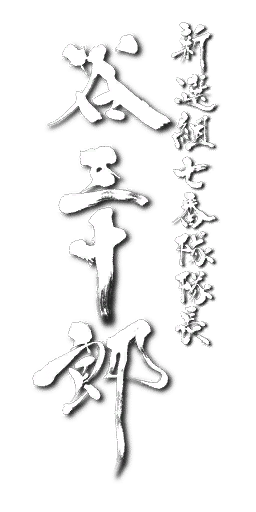 新選組七番隊隊長
谷三十郎